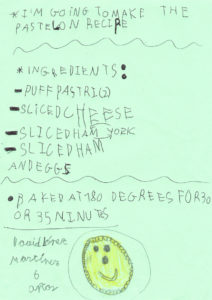 *I'M GOING TO MAKE THE
PASTELON RECIPE
*INGREDIENTS:
-PUFF PASTRI(2)
-SLICED CHEESE
-SLICED HAM YORK
-SLICED HAM
AND EGGS
•BAKED AT 180 DEGREES FOR 30
OR 35 MINUTES
David
6
años